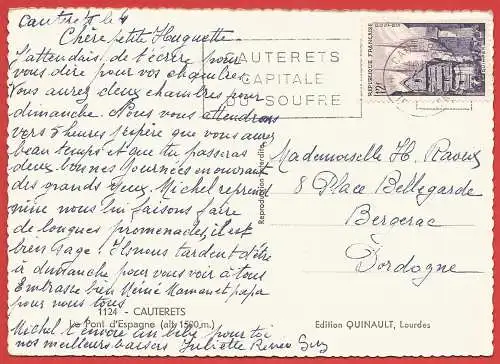 Cauterets le 4
Chère petite Huguette
J'attendais de t'écrire pour
vous dire pour vos chambres.
Vous aurez deux chambres pour
dimanche. Nous vous attendrons
vers 5 heures j'espère que vous aurez
beau temps et que tu passeras
deux bonnes journées en ouvrant
des grands yeux. Michel reprend
mine nous lui faisons faire
de longues promenades, il est
bien sage. Il nous tardent d'être
à dimanche pour vous voir à tous
Embrasse bien Mémé Maman et papa
pour nous tous
1124 - CAUTERETS
Le Pont d'Espagne (alt. 1500 m.)
Michel t'envoie un bibi pour toi
nos meilleurs baisers Juliette René Guy
CAUTERETS
CAPITALE
DU SOUFRE
REPUBLIQUE FRANÇAISE
12F
Reproduction interdite
Mademoiselle H. Raoux
8 Place Bellegarde
Bergerac
Dordogne
Edition QUINAULT, Lourdes